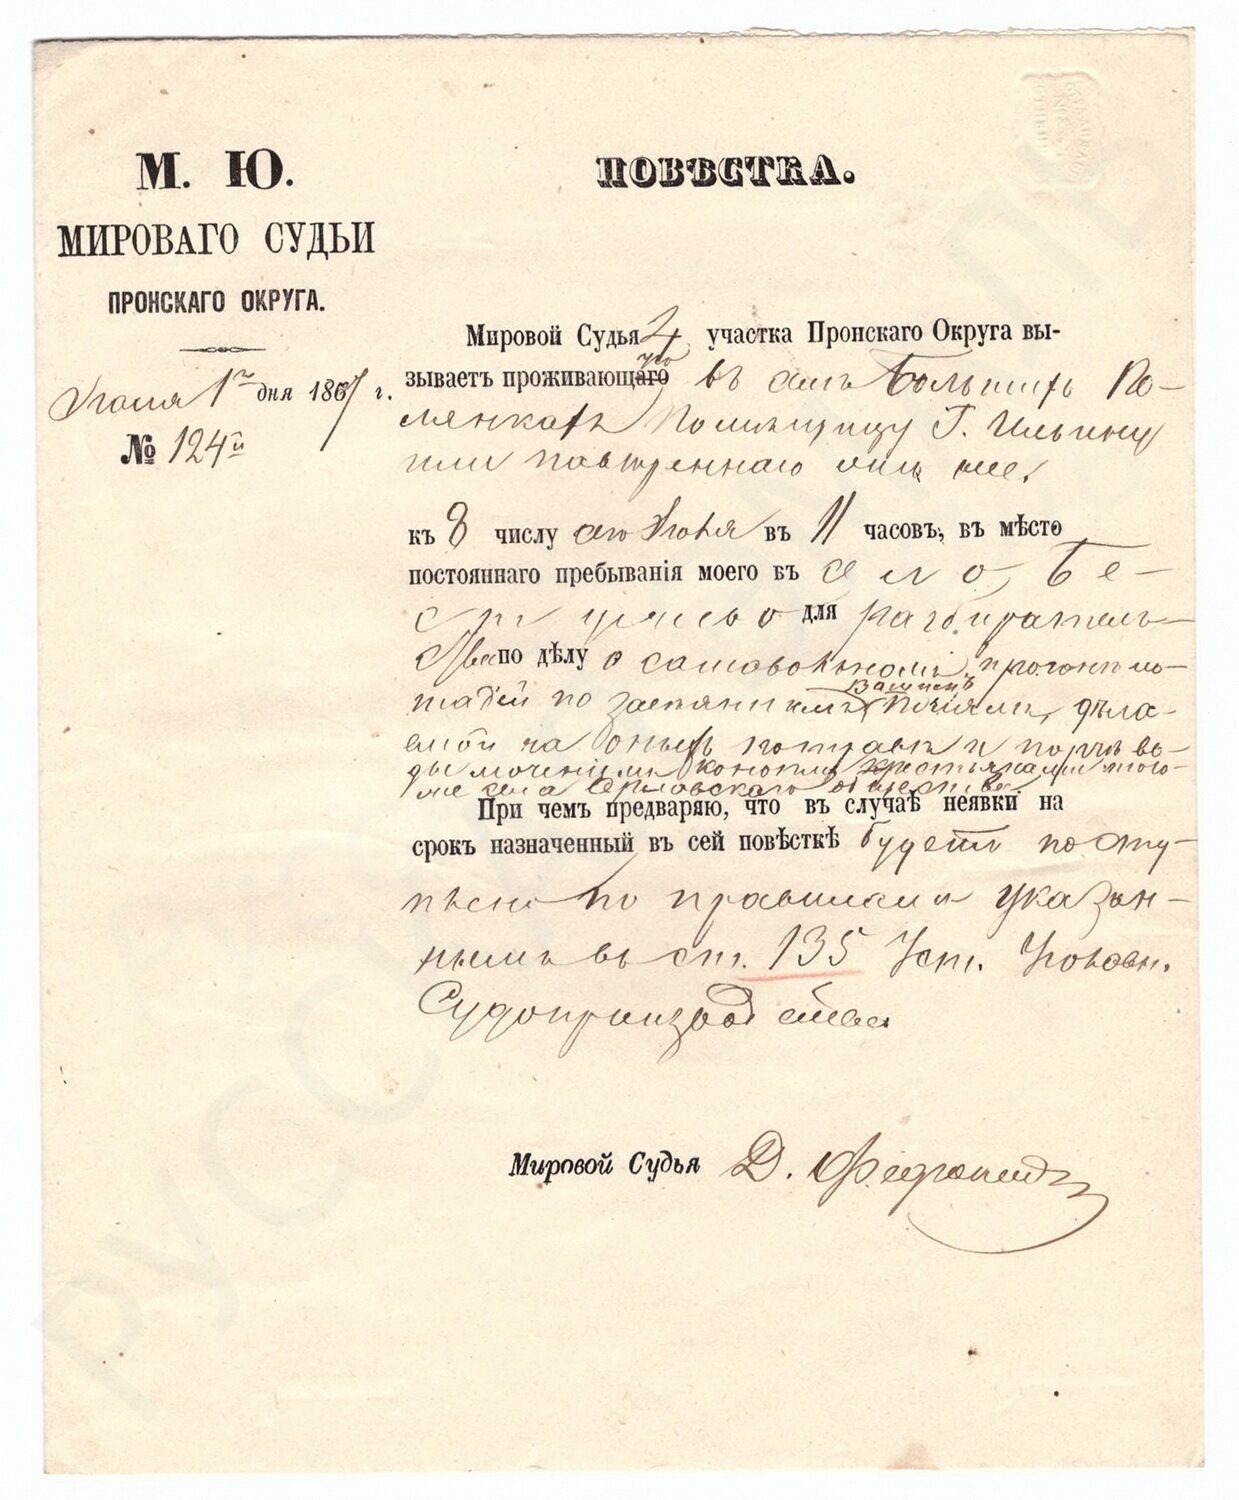 М. Ю.
МИРОВАГО СУДЬИ
ПРОНСКАГО ОКРУГА.
Июля 1го дня 1867 г.
№ 124й
ПОВѢСТКА.
Мировой Судья 4 участка Пронскаго Округа вы-
зываетъ проживающаго ую въ Большихъ По-
лянкахъ Помѣщицу Г. Ильину
или повѣреннаго отъ нее.
къ 8 числу сего Июля въ 11 часовъ, въ мѣсто
постояннаго пребыванія моего въ село, Бе-
стужево для разбиратель-
ства по дѣлу о самовольномъ прогонѣ ло-
шадей по Вашимъ
дѣла-
емой на оныхъ потравѣ и порчѣ во-
ды моченіемъ конопли крестьянами того-
же села общества.
При чемъ предваряю, что въ случаѣ неявки на
срокъ назначенный въ сей повѣсткѣ будетъ посту-
плено по правиламъ указан-
нымъ въ ст. 135 Уст. Уголовн.
Судопроизводства
Мировой Судья Д.